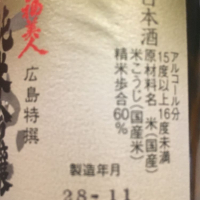 日本酒
アルコール分
15度以上16度未満
原材料名 米(国産)
米こうじ(国産米)
精米歩合60%
製造年月
28-11
美人
広島特撰
純米吟醸